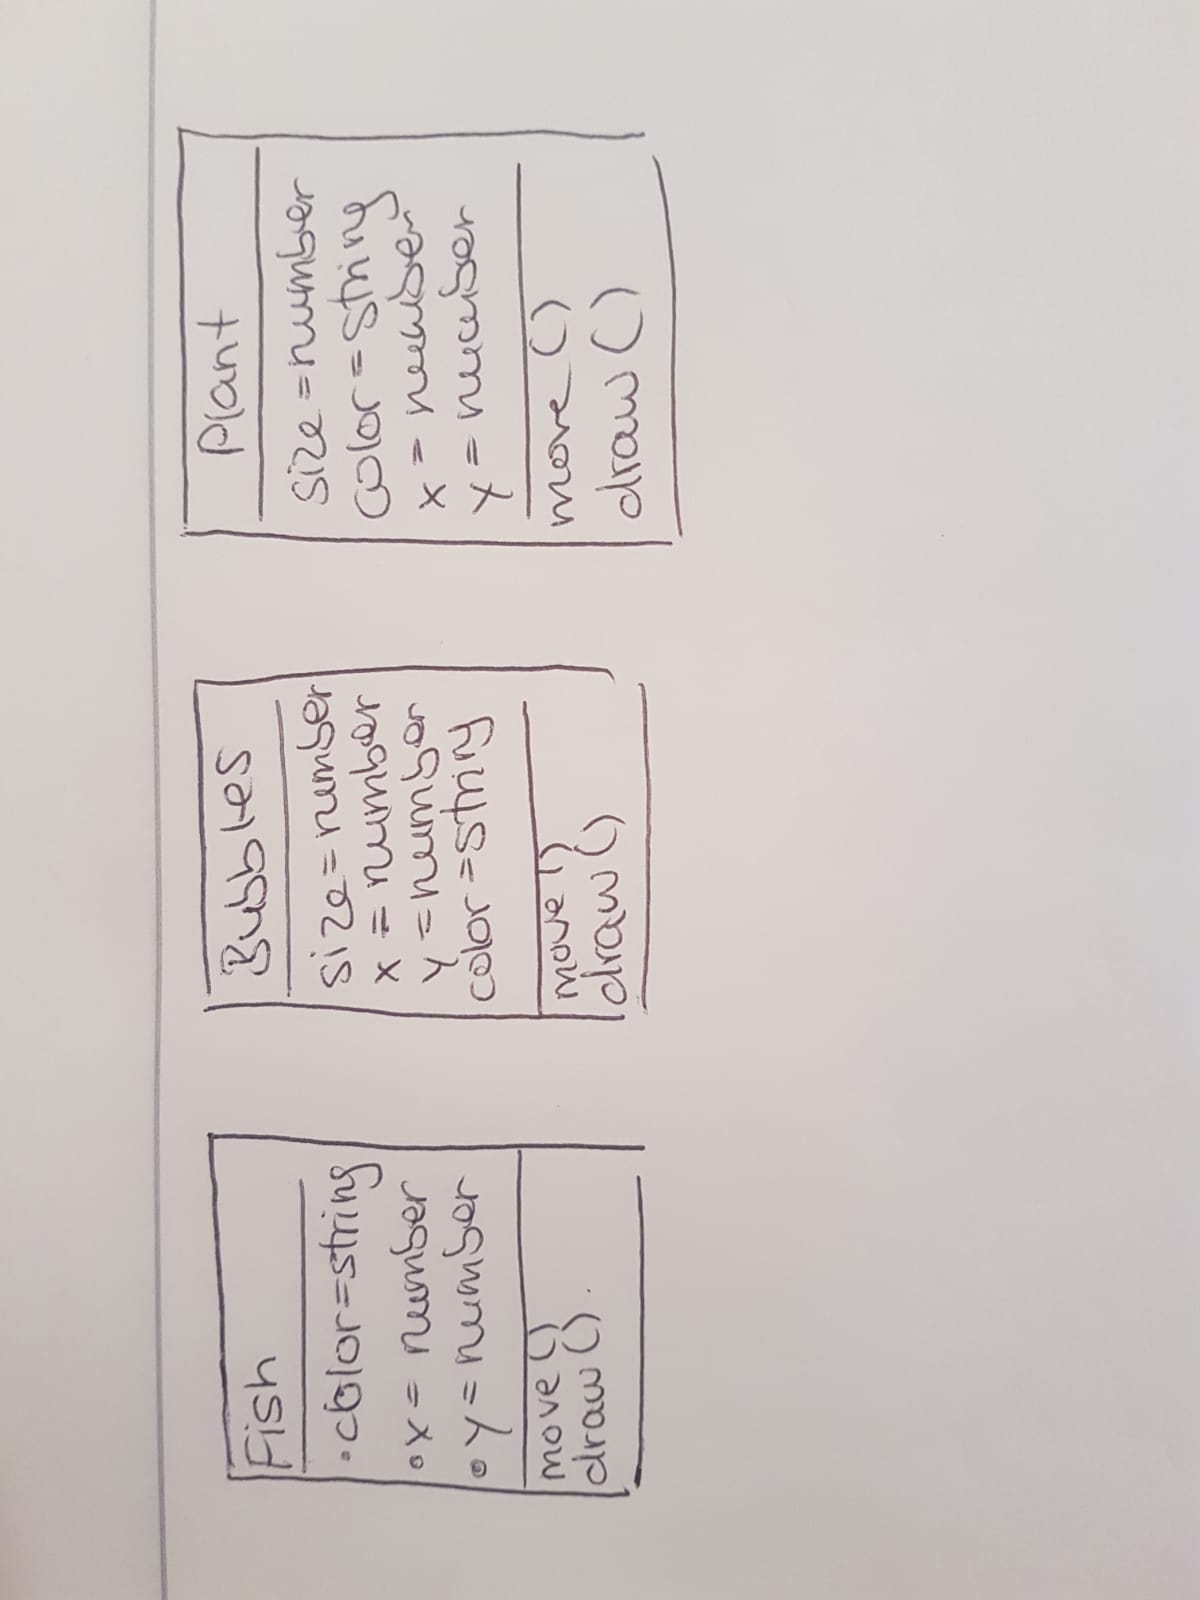 Fish
•color=string
•x = number
•y=number
move()
draw().
Bubbles
size=number
x = number
y=number
color=string
move()
draw()
Plant
size=number
color=string
x = number
y=number
move()
draw()